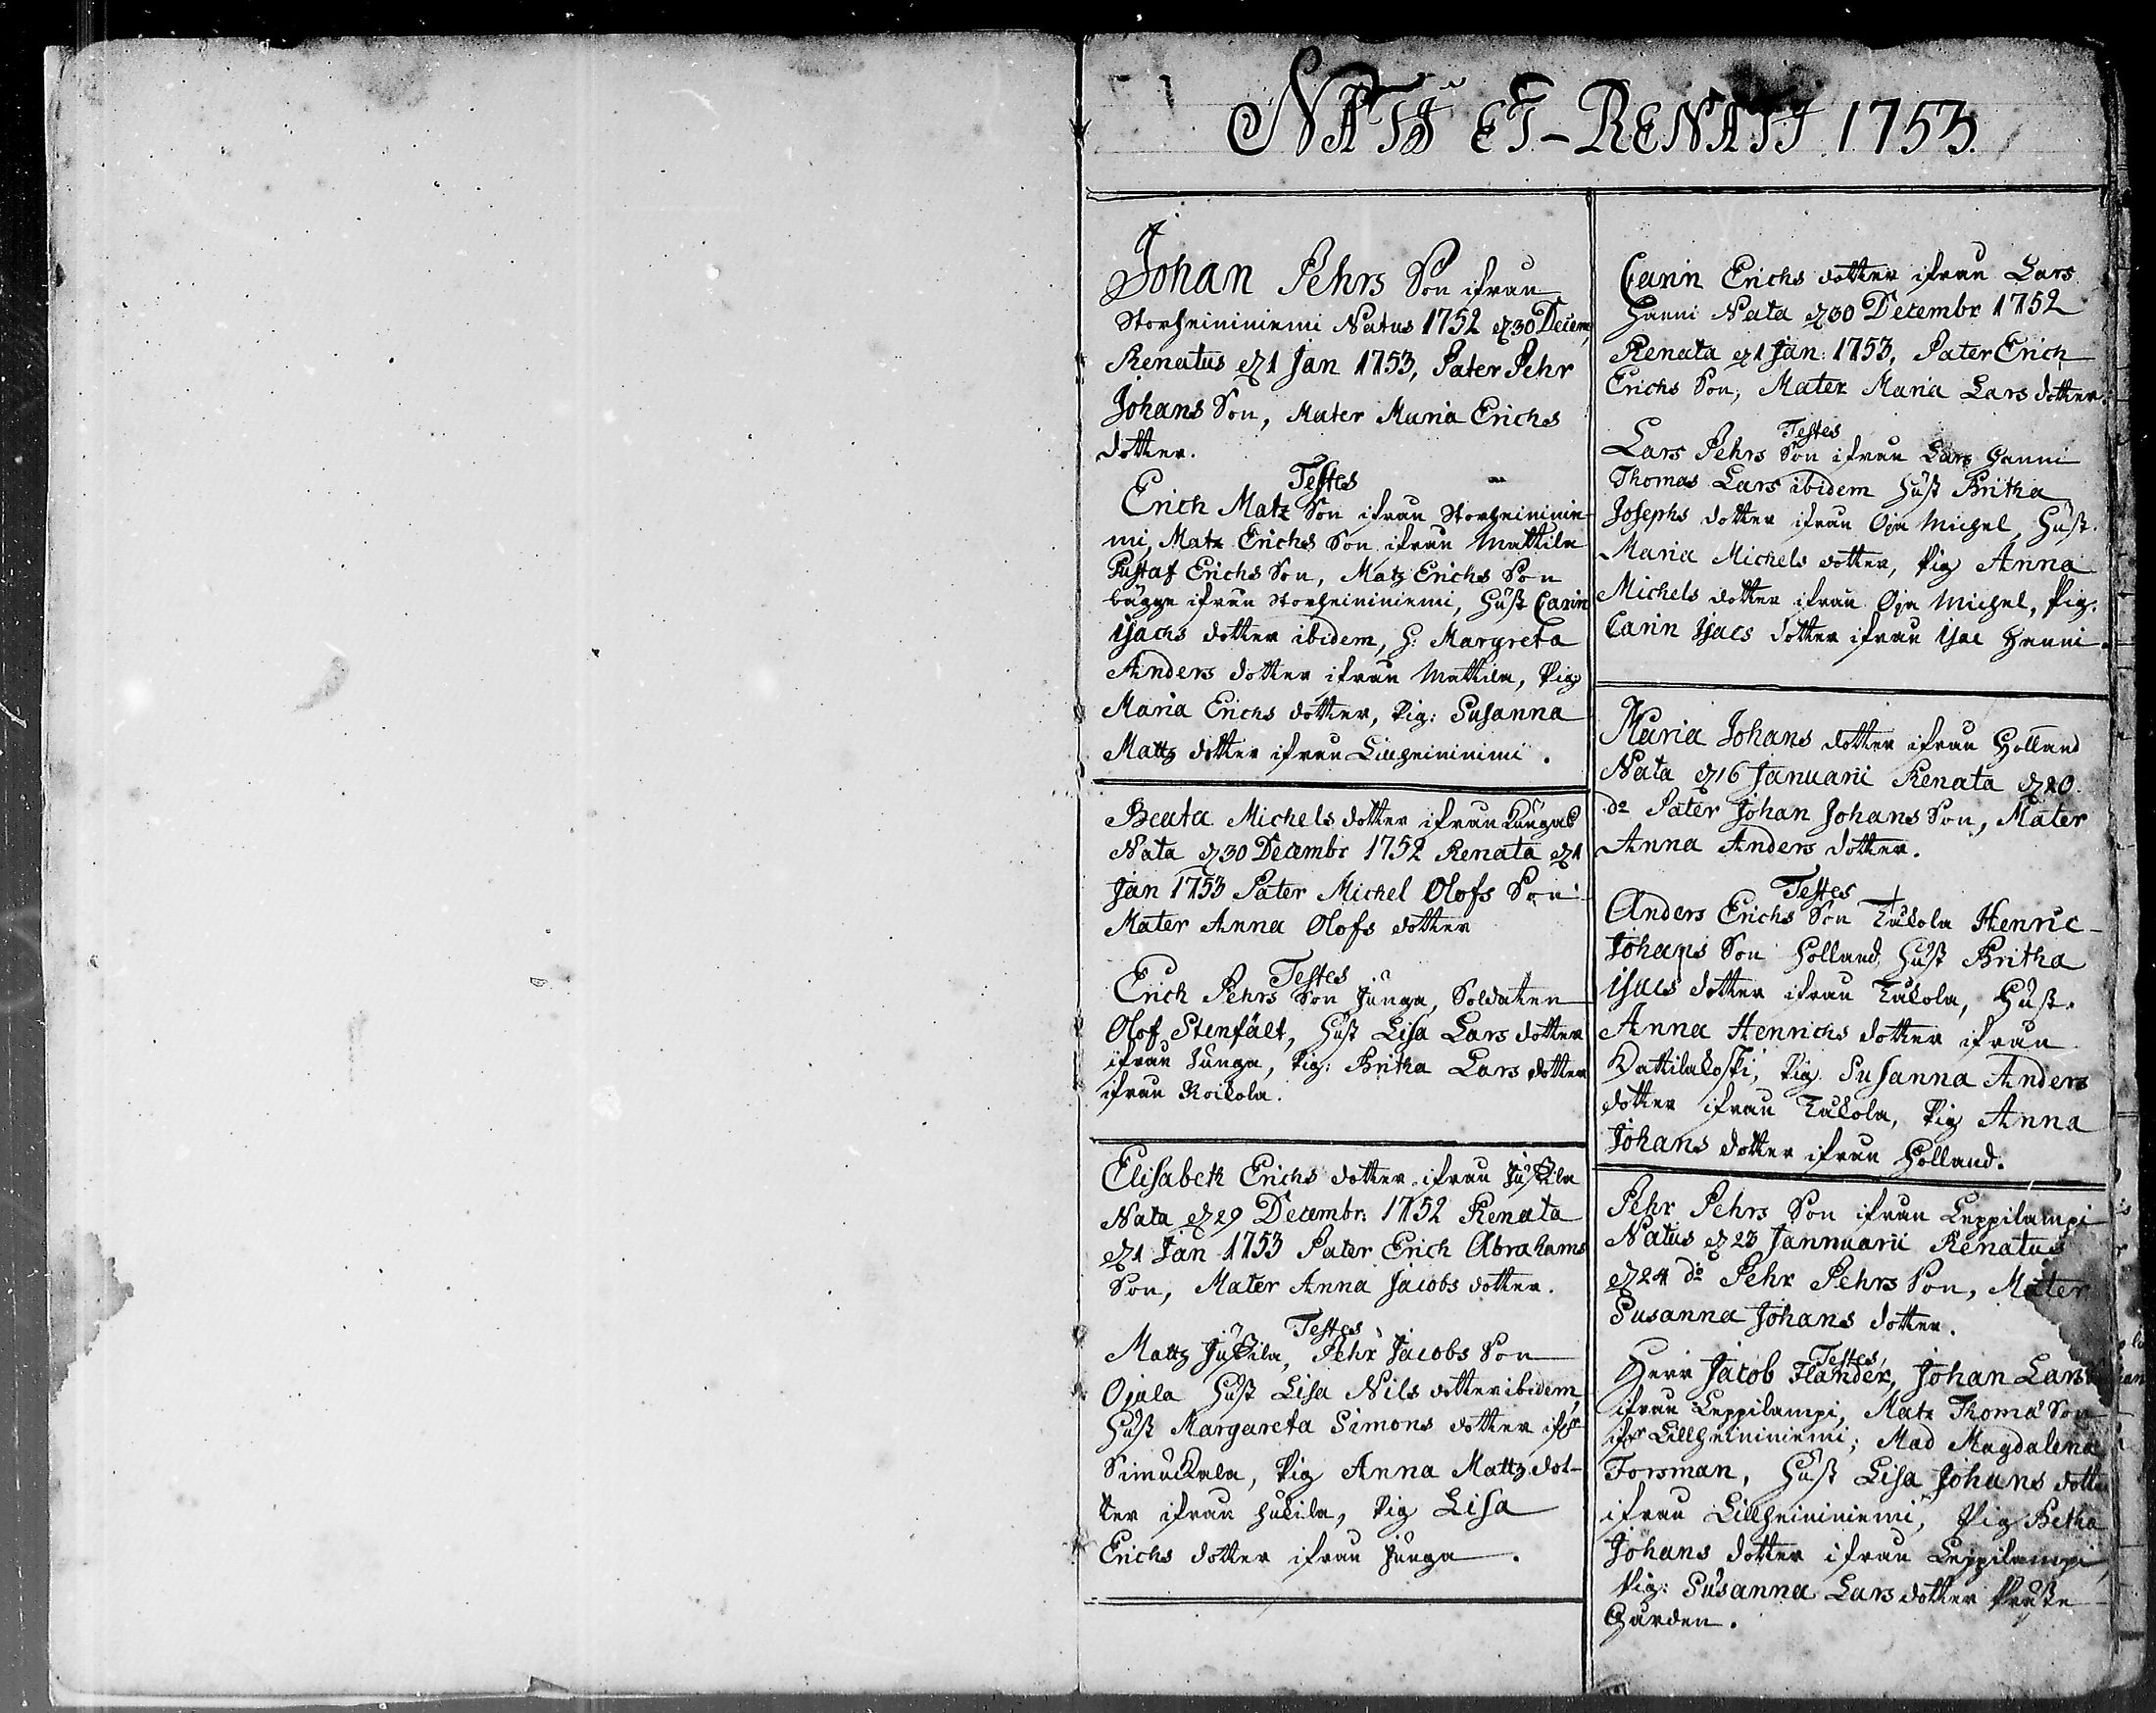 NATI ET RENATI 1753.
Johan Pehrs Son ifrån
Storheininiemi Natus 1752 d 30 Decem,
Renatus d 1 Jan 1753, Pater Pehr
Johans Son, Mater Maria Erichs
dotter.
Testes
Erich Matz Son ifrån Storheininie
mi, Matz Erichs Son ifrån Mattila
Gustaf Erichs Son, Matz Erichs Son
bägge ifrån Storheininiemi, Hust Carin
Isachs dotter ibidem, H: Margreta
Anders dotter ifrån Mattila, Pig
Maria Erichs dotter, Pig: Susanna
Mattz dotter ifrån Lillheininimi.
Beata Michels dotter ifrån
Nata d 30 Decembr 1752 Renata d 1
Jan 1753 Pater Michel Olofs Son
Mater Anna Olofs dotter
Testes
Erich Pehrs Son Junga, Soldaten
Olof Stenfält, Hust Lisa Lars dotter
ifrån Junga, Pig: Britha Lars dotter
ifrån Koikola.
Elisabeth Erichs dotter ifrån Juskila
Nata d 29 Decembr: 1752 Renata
d 1 Jan 1753 Pater Erich Abrahams
Son, Mater Anna Jacobs dotter.
Testes
Mattz Juskila, Pehr Jacobs Son
Ojala Hust Lisa Nils dotter ibidem,
Hust Margareta Simons dotter ifr
Simuckala, Pig Anna Mattz dot-
ter ifrån Hukila, Pig Lisa
Erichs dotter ifrån Junga.
Carin Erichs dotter ifrån Lars
Hanni Nata d 30 Decembr 1752
Renata d 1 Jan: 1753, Pater Erich
Erichs Son, Mater Maria Lars dotter.
Testes
Lars Pehrs Son ifrån Lars Hanni
Thomas Lars ibidem Hust Britha
Josephs dotter ifrån Oja Michel, Hust.
Maria Michels dotter, Pig Anna
Michels dotter ifrån Oja Michel, Pig:
Carin Isacs dotter ifrån Isac Hanni.
Maria Johans dotter ifrån Holland
Nata d 16 Januarii Renata d 20
do Pater Johan Johans Son, Mater
Anna Anders dotter.
Testes
Anders Erichs Son Kukola Henric
Johans Son Holland Hust Britha
Isacs dotter ifrån Kukola, Hust.
Anna Henrichs dotter ifrån
Vattilakoski, Pig Susanna Anders
dotter ifrån Kukola, Pig Anna
Johans dotter ifrån Holland.
Pehr Pehrs Son ifrån Leppilampi
Natus d 23 Jannuarii Renatus
d 24 do Pehr Pehrs Son, Mater
Susanna Johans dotter.
Testes
Herr Jacob Flander, Johan Lars
ifrån Leppilampi, Matz Thoma Son
ifr Lillheininiemi; Mad Magdalena
Forsman, Hust Lisa Johans dotte
ifrån Lillheininiemi, Pig Betha
Johans dotter ifrån Leppilampi,
Pig: Susanna Lars dotter Präste
Gården.